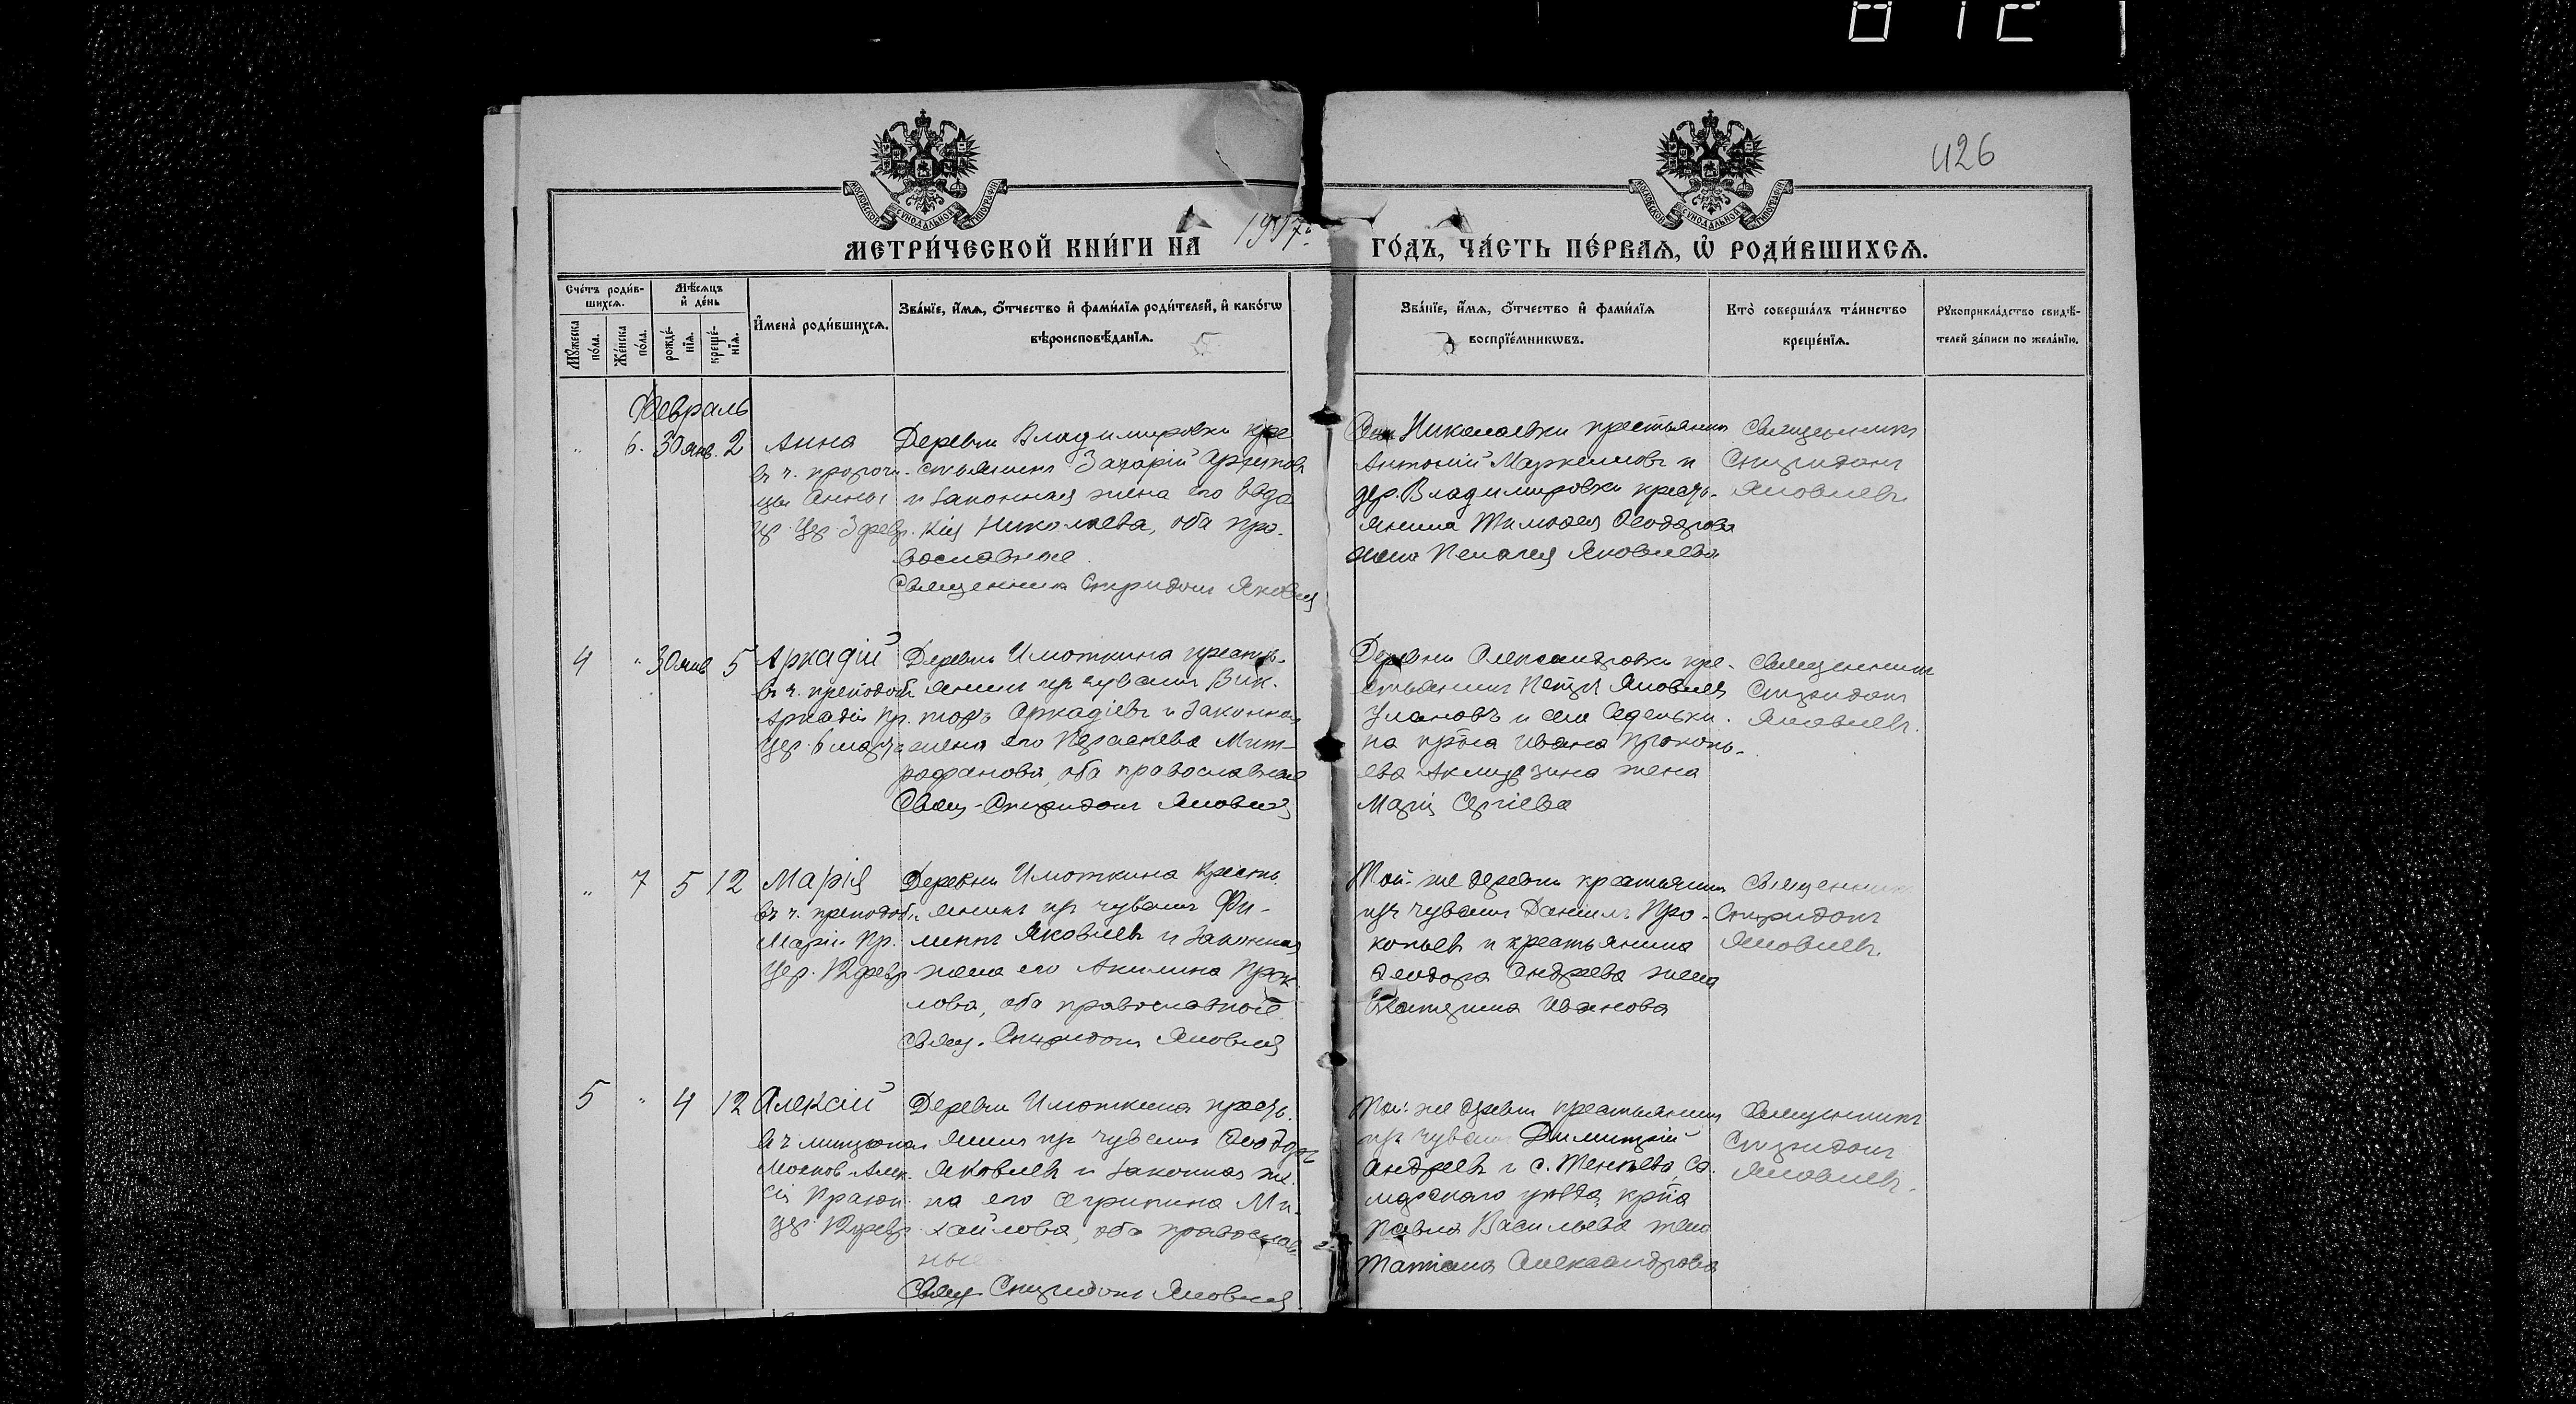 426
МОСКОВСКОЙ СѴНОДАЛЬНОЙ ТИПОГРАФІИ
МОСКОВСКОЙ СѴНОДАЛЬНОЙ ТИПОГРАФІИ
МЕТРИ́ЧЕСКОЙ КНИ́ГИ НА 1917 ГО́ДЪ, ЧА́СТЬ ПЕ́РВАѦ, Ѡ҆ РОДИ́ВШИХСѦ.
Сче́тъ роди́в-
шихсѧ.
Мꙋ́жеска
по́ла.
Же́нска
по́ла.
Мѣ́сѧцъ
и҆ де́нь
рожде́-
нїѧ.
креще́-
нїѧ.
И҆мена̀ роди́вшихсѧ.
Зва́нїе, и҆́мѧ, ѻ҆́тчество и҆ фами́лїѧ роди́телей, и҆ како́гѡ
вѣроисповѣ́данїѧ.
Зва́нїе, и҆́мѧ, ѻ҆́тчество и҆ фами́лїѧ
воспрїе́мникѡвъ.
Кто̀ соверша́лъ та́инство
креще́нїѧ.
Рꙋкоприкла́дство свидѣ́-
телей за́писи по жела́нїю.
Февраль
" 6. 30 янв. 2
Анна
въ ч. пророчи-
цы Анны
Цер. 3 февр.
Деревни Владимировки кре
стьянинъ Захарій Архипов
и законная жена его Евдо
кія Николаева, оба пра-
вославные.
Священникъ Спиридонъ Яковлев
Николаевки крестьянинъ
Антоній Маркеловъ и
дер. Владимировки кресть-
янина Тимофея Феодорова
жена Пелагея Яковлева
Священникъ
Спиридонъ
Яковлевъ.
4 " 30 янв 5
Аркадій
въ ч. преподоб
Аркадія Пр.
Цер. 6 марта
Деревни Илюткина кресть-
янинъ из чувашъ Вик-
торъ Аркадіевъ и законная
жена его Параскева Мит-
рофанова, оба православные
Свящ. Спиридонъ Яковлев
Деревни Александровки кре-
стьянинъ Петръ Яковлев
Улановъ и села Седельки-
на кр-на Ивана Прокопь-
ева жена
Марія Сергіева
Священникъ
Спиридонъ
Яковлевъ.
" 7 5 12
Марія
въ ч. преподоб.
Маріи Пр.
Цер. 12 февр
Деревни Илюткина кресть
янинъ из чувашъ Фи-
липпъ Яковлевъ и законная
жена его Акилина Прок
лова, оба православные
Свящ. Спиридонъ Яковлев
Той-же деревни крестьянинъ
изъ чувашъ Даніилъ Про-
копьевъ и крестьянина
Феодора Андреева жена
Екатерина Иванова
Священникъ
Спиридонъ
Яковлевъ.
5 " 4 12
Алексій
въ ч митропол
Москов. Алек-
сія
Цер. 12 февр
Деревни Илюткина кресть.
янинъ из чувашъ Феодоръ
Яковлевъ и законная же-
на его Агрипина Ми-
хайлова, оба православ
ные
Свящ. Спиридонъ Яковлев
Той-же деревни крестьянинъ
изъ чувашъ Димитрій
Андреевъ и с. Са-
марскаго уѣзда, кр-на
Павла Васильева жена
Татіана Александрова
Священникъ
Спиридонъ
Яковлевъ.